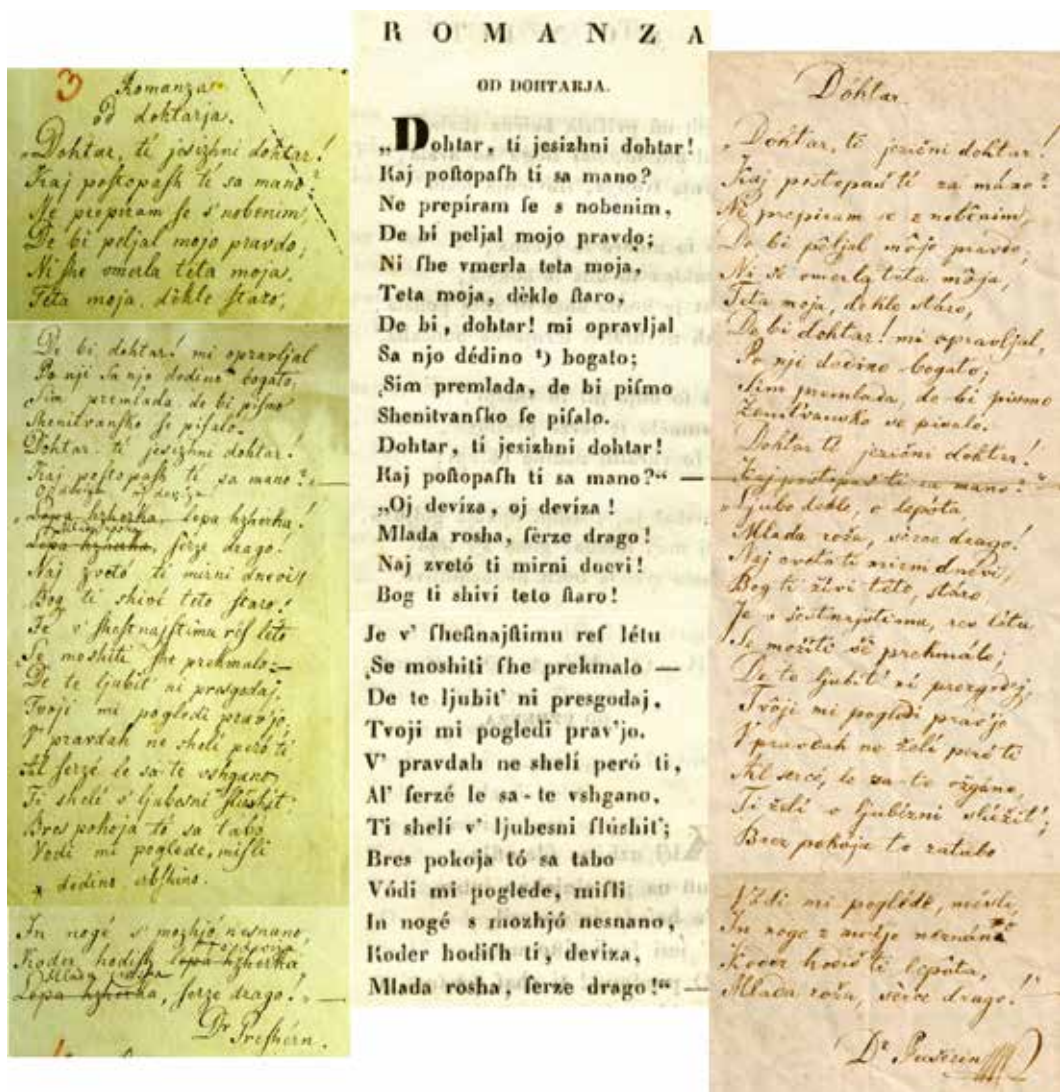 3
Romanza
od dohtarja.
„Dohtar, tí jesizhni dohtar!
Kaj poſtopaſh tí sa mano?
Ne prepiram ſe s' nobenim,
De bi peljal mojo pravdo;
Ni ſhe vmerla teta moja,
Teta moja, dèkle ſtaro,
De bi dohtar! mi opravljal
Po nji sa njo dedino* bogato;
Sim premlada, de bi piſmo
Shenitvanſko ſe piſalo.
Dohtar, tí jesizhni dohtar!
Kaj poſtopaſh tí sa mano? —
Oj deviza, oj deviza!
„Lepa hzherka, lepa hzherka!
Mlada rosha,
Lepa hzherka, ſerze drago!
Naj zvetó ti mirni dnevi!
Bog ti shiví teto ſtaro!
Je v' ſheſtnajſtimu reſ leto
Se moshiti ſhe prekmalo —
De te ljubit' ni presgodaj,
Tvoji mi pogledi pravjo,
V' pravdah ne shelí peró ti
Al ſerzé le sa-te vshgano,
Ti shelí v' ljubesni ſlushit
Bres pokoja tó sa tabo
Vodi mi poglede, miſli
* dedino, erbſhino.
In nogé s' mozhjó nesnano,
Koder hodiſh lepa hzherka
Mlada rosha
Lepa hzherka, ſerze drago! —
Dr Preſhérn.
ROMANZA
OD DOHTARJA.
„Dohtar, tí jesizhni dohtar!
Kaj poſtopaſh ti sa mano?
Ne prepíram ſe s nobenim,
De bi peljal mojo pravdo;
Ni ſhe vmerla teta moja,
Teta moja, dèkle ſtaro,
De bi, dohtar! mi opravljal
Sa njo dédino ¹) bogato;
Sim premlada, de bi piſmo
Shenitvanſko ſe piſalo.
Dohtar, tí jesizhni dohtar!
Kaj poſtopaſh ti sa mano?“ —
„Oj deviza, oj deviza!
Mlada rosha, ſerze drago!
Naj zvetó ti mirni dnevi!
Bog ti shiví teto ſtaro!
Je v' ſheſnajſtimu reſ létu
Se moshiti ſhe prekmalo —
De te ljubit' ni presgodaj,
Tvoji mi pogledi prav'jo.
V' pravdah ne shelí peró ti,
Al' ſerzé le sa-te vshgano,
Ti shelí v' ljubesni ſlúshit';
Bres pokoja tó sa tabo
Vódi mi poglede, miſli
In nogé s mozhjó nesnano,
Koder hodiſh ti, deviza,
Mlada rosha, ſerze drago!“ —
Dóhtar.
„Dohtar, tí jezični dohtar!
Kaj postopaš tí za máno?
Ne prepiram se z noběnim,
De bi pêljal môjo právdo;
Ni še vmerla têta môja,
Teta moja, dekle stáro,
De bi dohtar! mi opravljal,
Po nji dedino bogato;
Sim premlada, de bi pismo
Ženitvansko se pisalo.
Dohtar tí jezični dohtar!
Kaj postopaš tí za mano?“
„Ljubo dekle, o lepóta,
Mlada roža, sèrce drago!
Naj cveto ti mirni dnévi,
Bog ti živi teto, stáro,
Je v šestnajstimu, res létu
Se možíti še prekmálo;
De te ljubit' ni prezgodej,
Tvôji mi pogledi prav'jo
V pravdah ne želí peró ti
Al sercé, le za-te vžgáno,
Ti želí v ljubézni slúžit';
Brez pokoja to za tabo
Vodi mi poglede, misli,
In noge z močjo neznáno
Koder hodiš ti lepóta,
Mlada roža, sèrce drago!
Dr Prešérin